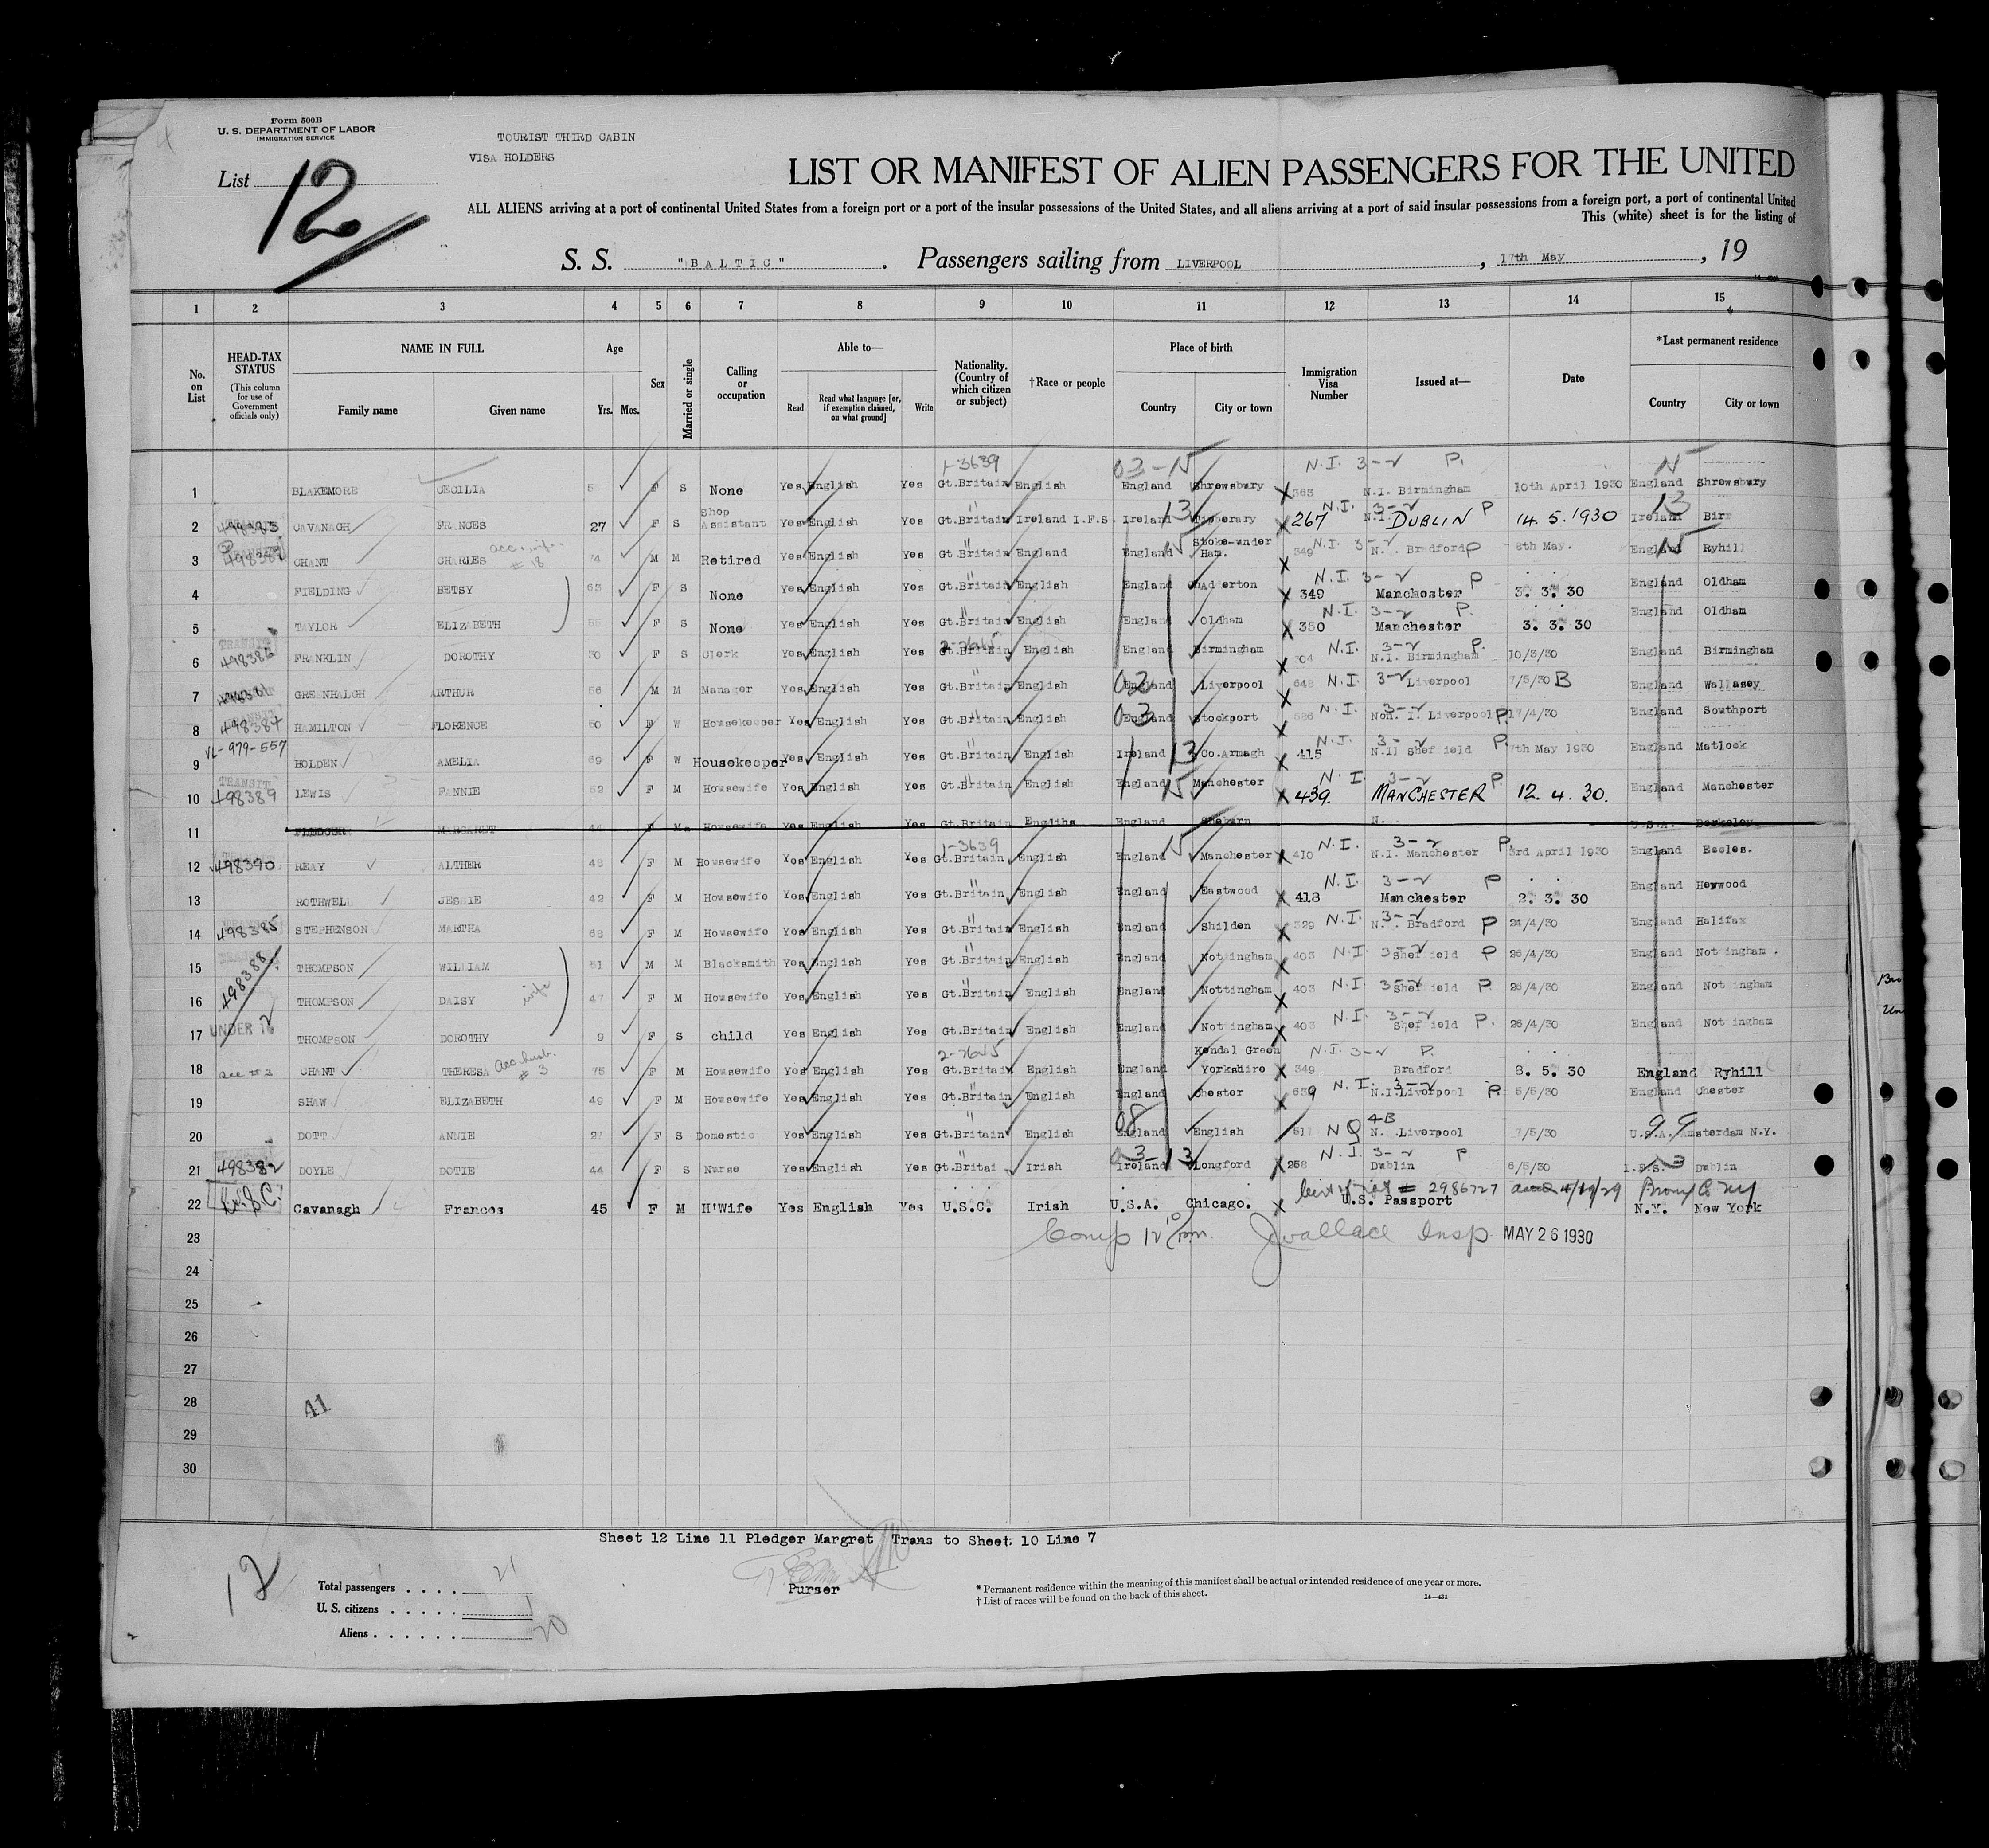 Form 500B
U. S. DEPARTMENT OF LABOR
IMMIGRATION SERVICE
TOURIST THIRD CABIN
VISA HOLDERS
List 12
LIST OR MANIFEST OF ALIEN PASSENGERS FOR THE UNITED
ALL ALIENS arriving at a port of continental United States from a foreign port or a port of the insular possessions of the United States, and all aliens arriving at a port of said insular possessions from a foreign port, a port of continental United
This (white) sheet is for the listing of
S. S. "BALTIC" . Passengers sailing from LIVERPOOL , 17th May , 19
1 2 3 4 5 6 7 8 9 10 11 12 13 14 15
No. on List
HEAD-TAX STATUS (This column for use of Government officials only)
NAME IN FULL Family name Given name
Age Yrs. Mos.
Sex
Married or single
Calling or occupation
Able to— Read Read what language [or, if exemption claimed, on what ground] Write
Nationality. (Country of which citizen or subject)
†Race or people
Place of birth Country City or town
Immigration Visa Number
Issued at—
Date
*Last permanent residence Country City or town
1-3639 03-15 N.I. 3-2 P. 15
1 BLAKEMORE CECILIA F S None Yes English Yes Gt.Britain English England Shrewsbury 363 N.I. Birmingham 10th April 1930 England Shrewsbury
2 498383 CAVANAGH FRANCES 27 F S Shop Assistant Yes English Yes Gt.Britain Ireland I.F.S. Ireland 13 Tipperary 267 N.I. 3-2 DUBLIN P 14.5.1930 Ireland 13 Birr
3 498387 CHANT CHARLES acc. wife #18 74 M M Retired Yes English Yes Gt.Britain England England 15 Stoke-under Ham. 349 N.I. 3-2 Bradford P 8th May. England 15 Ryhill
4 FIELDING BETSY 63 F S None Yes English Yes Gt.Britain English England Chadderton 349 N.I. 3-2 P Manchester 3.3.30 England Oldham
5 TAYLOR ELIZABETH F S None Yes English Yes Gt.Britain English England Oldham 350 N.I. 3-2 P. Manchester 3.3.30 England Oldham
6 TRANSIT 498386 FRANKLIN DOROTHY 30 F S Clerk Yes English Yes Gt.Britain English England Birmingham 704 N.I. 3-2 P. N.I. Birmingham 10/3/30 England Birmingham
7 GREENHALGH ARTHUR 56 M M Manager Yes English Yes Gt.Britain English 02 England Liverpool 648 N.I. 3-2 Liverpool 7/5/30 B England Wallasey
8 498384 HAMILTON FLORENCE 50 F W Housekeeper Yes English Yes Gt.Britain English 03 England Stockport 586 N.I. 3-2 Non. I. Liverpool P. 17/4/30 England Southport
9 VL-979-557 HOLDEN AMELIA 69 F W Housekeeper Yes English Yes Gt.Britain English Ireland 13 Co.Armagh 415 N.I. 3-2 N.I. Sheffield P. 7th May 1930 England Matlock
10 TRANSIT 498389 LEWIS FANNIE 52 F M Housewife Yes English Yes Gt.Britain English England 15 Manchester 439. N.I. 3-2 P. MANCHESTER 12.4.30. England Manchester
11 PLEDGER MARGARET 44 F M Housewife Yes English Yes Gt.Britain Englihs England N. U.S.A. Berkeley
1-3639
12 498390 REAY ALTHER 43 F M Housewife Yes English Yes Gt.Britain English England 15 Manchester 410 N.I. 3-2 P N.I. Manchester 3rd April 1930 England Eccles.
13 ROTHWELL JESSIE 42 F M Housewife Yes English Yes Gt.Britain English England Eastwood 418 N.I. 3-2 P Manchester 2.3.30 England Heywood
14 498385 STEPHENSON MARTHA 68 F M Housewife Yes English Yes Gt.Britain English England Shilden 329 N.I. 3-2 Bradford P 24/4/30 England Halifax
15 498388 THOMPSON WILLIAM 51 M M Blacksmith Yes English Yes Gt.Britain English England Nottingham 403 N.I. 3-2 Sheffield P 26/4/30 England Nottingham.
16 THOMPSON DAISY wife 47 F M Housewife Yes English Yes Gt.Britain English England Nottingham 403 N.I. 3-2 Sheffield P. 26/4/30 England Nottingham
17 UNDER 16 THOMPSON DOROTHY 9 F S child Yes English Yes Gt.Britain English England Nottingham 403 N.I. 3-2 Sheffield P. 26/4/30 England Nottingham
2-7645
18 See #3 CHANT THERESA acc. husb. #3 75 F M Housewife Yes English Yes Gt.Britain English England Kendal Green Yorkshire 349 N.I. 3-2 P. Bradford 8.5.30 England Ryhill
19 SHAW ELIZABETH 49 F M Housewife Yes English Yes Gt.Britain English England Chester 639 N.I. 3-2 N.I. Liverpool P. 5/5/30 England Chester
20 DOTT ANNIE 27 F S Domestic Yes English Yes Gt.Britain English 08 England English 511 NQ 4B N. Liverpool 7/5/30 U.S.A. 99 Amsterdam N.Y.
21 498382 DOYLE DOTIE 44 F S Nurse Yes English Yes Gt.Britai Irish 03-13 Ireland Longford 258 N.I. 3-2 P Dublin 6/5/30 I.F.S. Dublin
22 U.S.C. Cavanagh Frances 45 F M H'Wife Yes English Yes U.S.C. Irish U.S.A. Chicago. # 2986727 4/19/29 U.S. Passport Bronx Co NY N.Y. New York
23 Comp 12 10 pm. J Wallace Insp. MAY 26 1930
24
25
26
27
28 41
29
30
Sheet 12 Line 11 Pledger Margret Trans to Sheet. 10 Line 7
Purser
12
Total passengers . . . . 21
U. S. citizens . . . . . 1
Aliens . . . . . . 20
* Permanent residence within the meaning of this manifest shall be actual or intended residence of one year or more.
† List of races will be found on the back of this sheet.